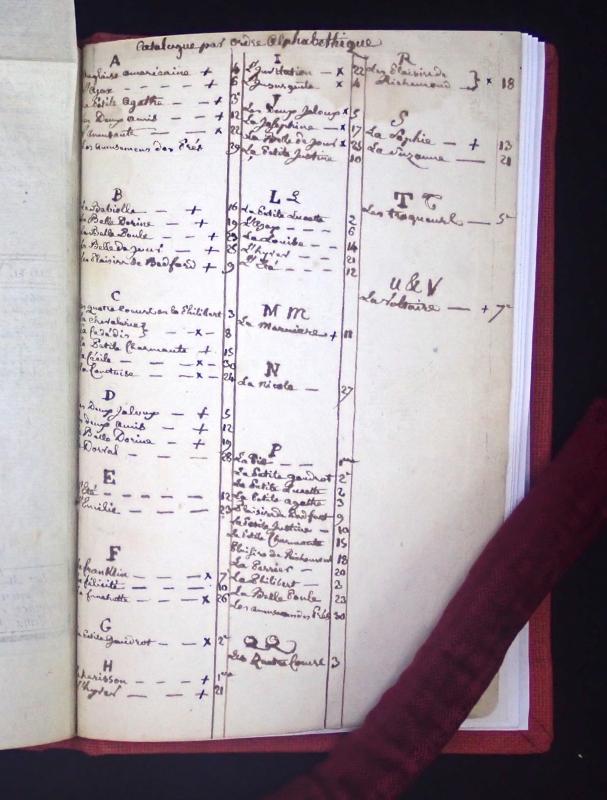 Catalogue par ordre Alphabethique
A
anglaise americaine + 4
ajax + 6
petite agathe — + 3
Deux amis — + 12
amusante — x 22
Les amusemens des Prés 29
B
La Babiolle — + 16
La Belle Dorine — + 19
La Belle Poule — + 23
La Belle de jour — + 25
Les Plaisirs de Bedford + 9
C
quatre Courses ou la Philibert 3
— x — 8
La Petite Charmante + 15
La Cécile — — x — 30
— — x — 24
D
Deux Jaloux — + 5
Deux amis — + 12
Belle Dorine — + 19
Dorval — — — 28
E
Eté — — — — 12
Emilie — — — 23
F
franklin — — x 7
félicité — — — 10
— — x 26
G
Petite Gaudrot — x 2
H
herisson — — + 1
l'hyver — — + 21
I
L'Invitation — x 22
L'Insurgente — x 4
J
Les Deux Jaloux x 5
La Josephine — x 17
La Belle de jour x 25
La Petite Justine 10
L L
La Petite Lucette 2
6
La Louise — — 14
L'hyver — — 21
L'Eté — — 12
M m
La Meuniere + 11
N
La Nicole — 27
P
La Pie — — 1
La Petite Gaudrot 2
La Petite Lucette 2
La Petite agathe 3
Plaisirs de Bedfort 9
La Petite Justine — 10
La Petite Charmante 15
Plaisirs de Richemont 18
La Perrier — 20
La Philibert — 3
La Belle Poule 23
Les amusemens des Prés 30
Q Q
Les Quatre Courses 3
R
Les Plaisirs de
Richemond } x 18
S
La Sophie — + 13
La Suzanne — 21
T T
Les Troqueurs — 5
U & V
La Voltaire — + 7